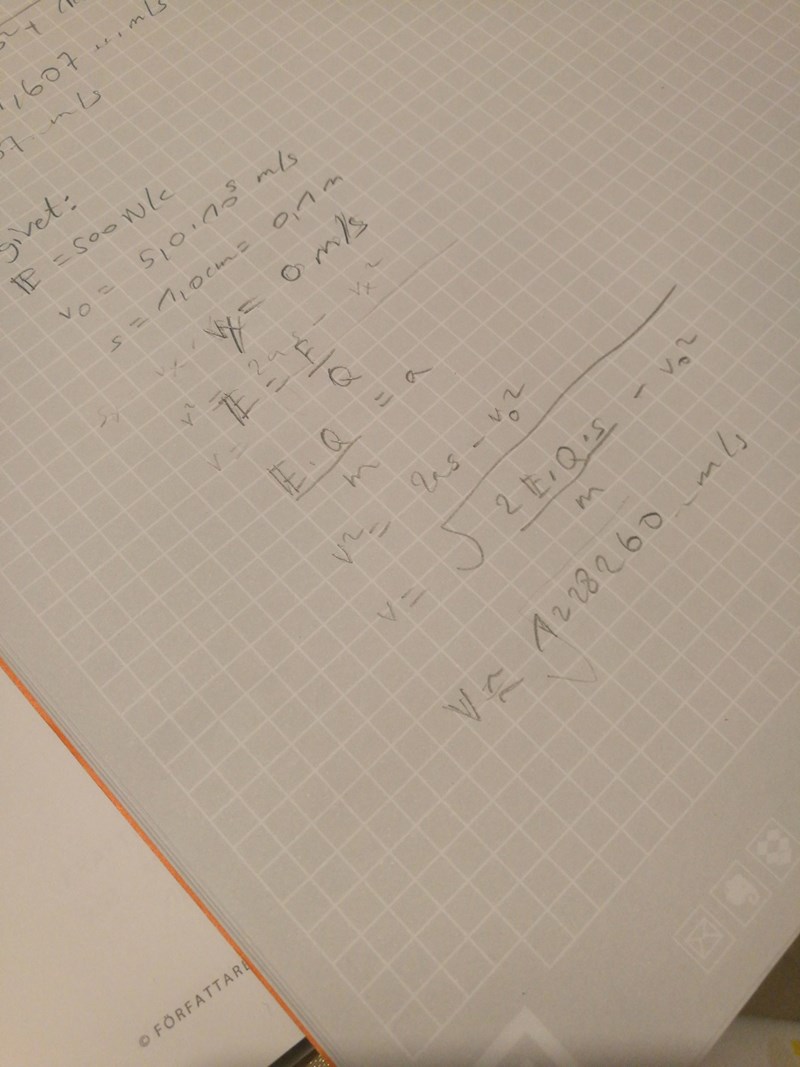 ,607 ... m/s
m/s
givet:
E = 500 N/C
v0 = 5,0 · 10^5 m/s
s = 1,0 cm = 0,1 m
= 0 m/s
E = F/Q
E·Q/m = a
v² = 2as - v0²
v = √(2E·Q·s/m - v0²)
v ≈ 1228260 .. m/s
© FÖRFATTARE